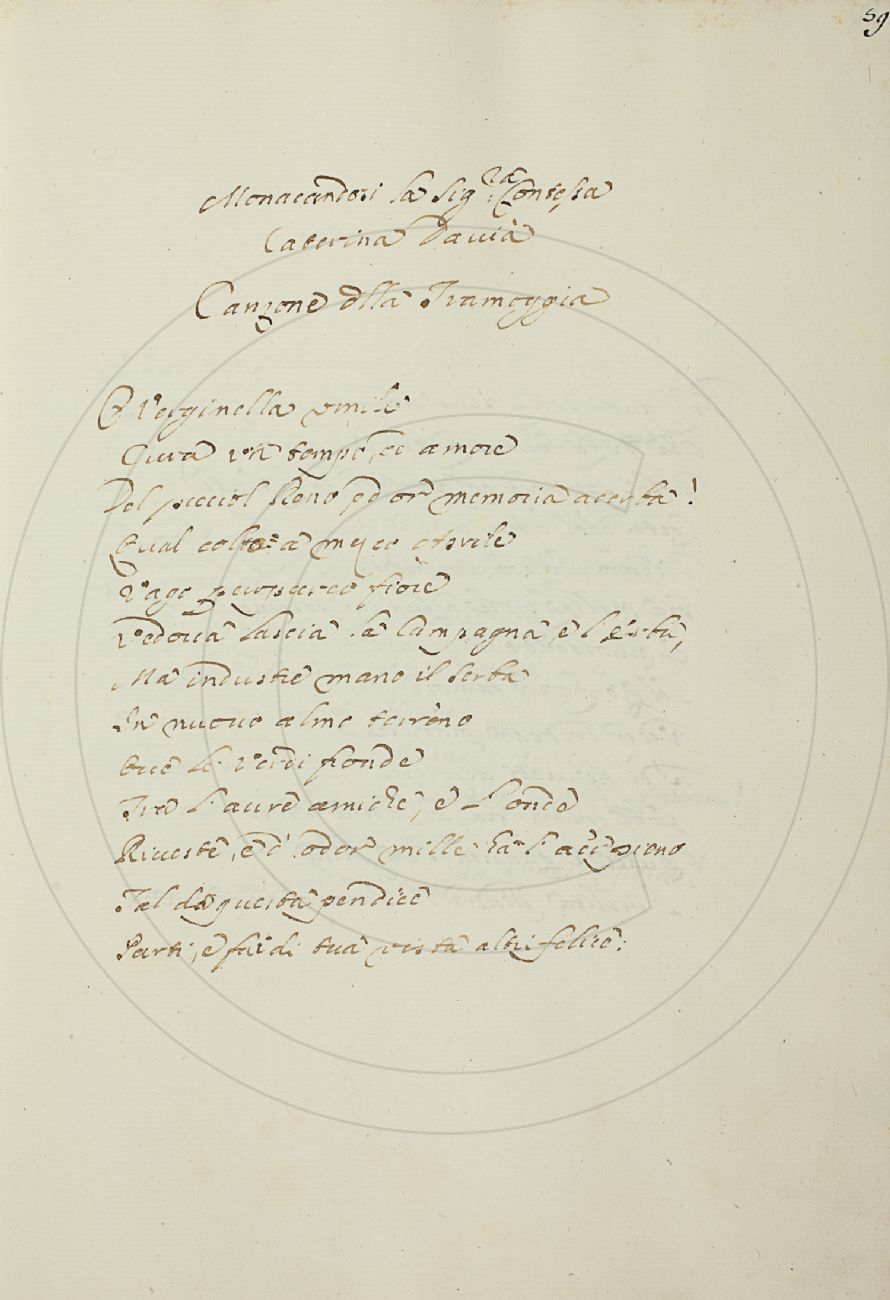 59
Monacandosi la Sig.ra Contessa
Caterina Dauia
Canzone dlla Tramoggia
O Verginella vmile
Cura vn tempo, ed amore
Del picciol Reno, ed or memoria acerba!
Qual colto a mezzo Aprile
Vago porporeo fiore
Vedoua lascia la Campagna, e l'erba,
Ma industre mano il serba
In nuouo almo terreno
Oue le verdi fronde
Tra l'aure amiche, e l'onde
Riueste, e d'odor mille ha l'aer pieno
Tal da questa pendice
Parti, e fai di tua vista altri felice: